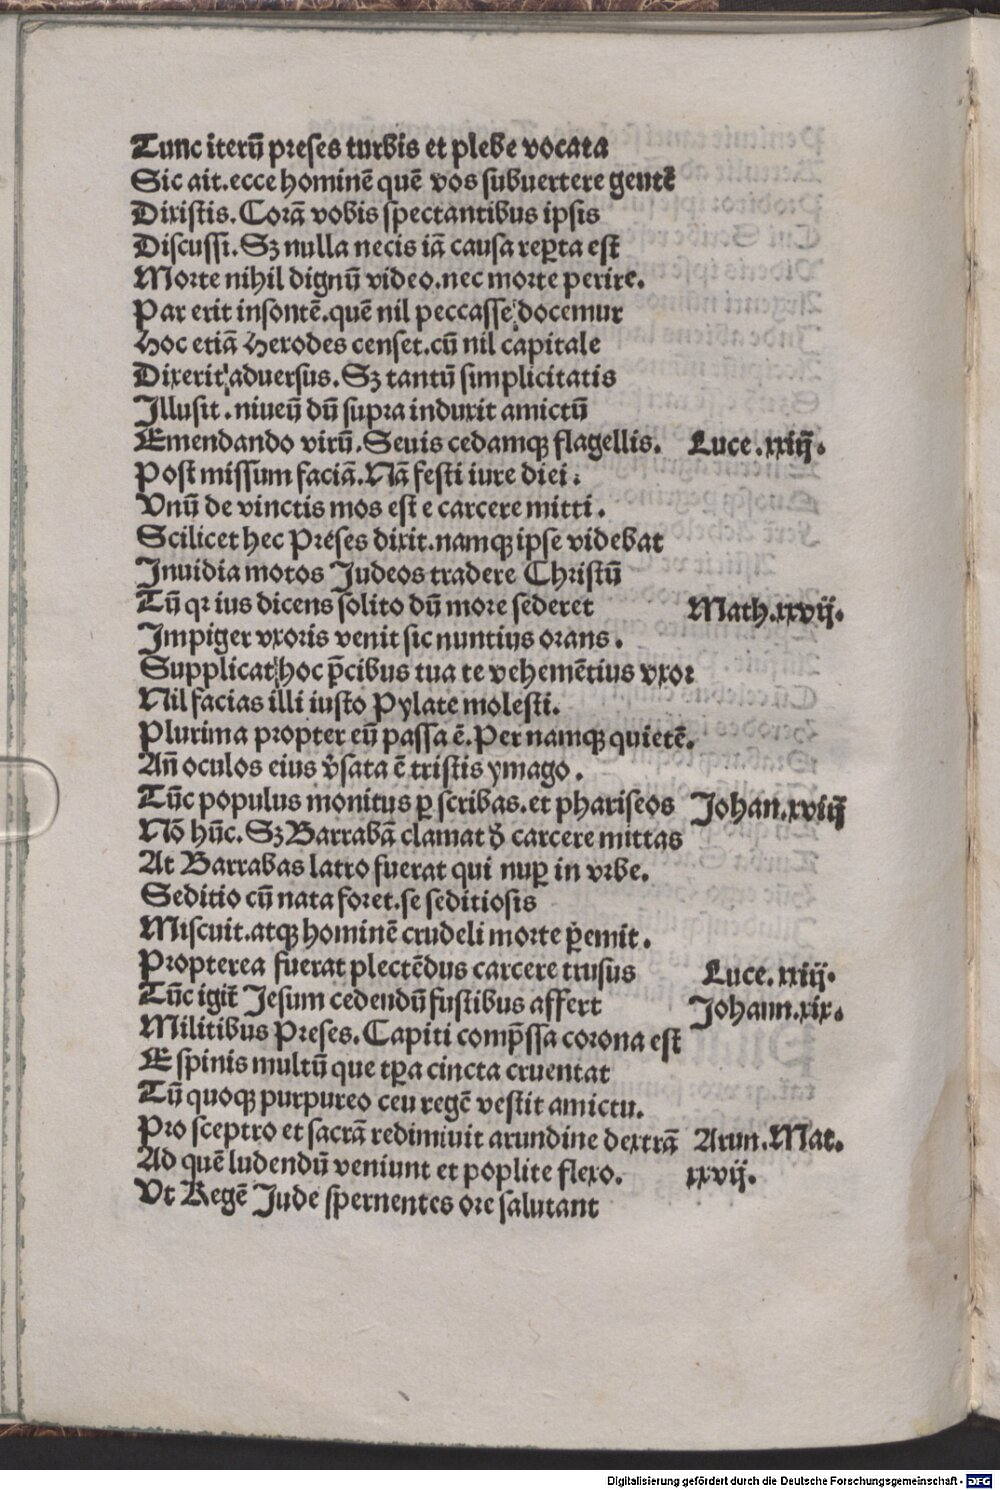 Tunc iterū preses turbis et plebe vocata
Sic ait. ecce hominē quē vos subuertere gentē
Dixistis. Corā vobis spectantibus ipsis
Discussi. Sꝫ nulla necis iā causa reꝑta est
Morte nihil dignū video. nec morte perire.
Par erit insontē. quē nil peccasse docemur
Hoc etiā Herodes censet. cū nil capitale
Dixerit aduersus. Sꝫ tantū simplicitatis
Illusit. niueū dū supra induxit amictū
Emendando virū. Seuis cedamqꝫ flagellis. Luce. xxiij.
Post missum faciā. Nā festi iure diei.
Vnū de vinctis mos est e carcere mitti.
Scilicet hec Preses dixit. namqꝫ ipse videbat
Inuidia motos Judeos tradere Christū
Tū qꝛ ius dicens solito dū more sederet Math. xxvij.
Impiger vxoris venit sic nuntius orans.
Supplicat hoc p̄cibus tua te vehemētius vxor
Nil facias illi iusto Pylate molesti.
Plurima propter eū passa ē. Per namqꝫ quietē.
Añ oculos eius v̓sata ē tristis ymago.
Tūc populus monitus ꝑ scribas. et phariseos Johan. xviij
Nō hūc. Sꝫ Barrabā clamat vt̓ carcere mittas
At Barrabas latro fuerat qui nuꝑ in vrbe.
Seditio cū nata foret. se seditiosis
Miscuit. atqꝫ hominē crudeli morte ꝑemit.
Propterea fuerat plectēdus carcere trusus Luce. xxiij.
Tūc igit̄ Jesum cedendū fustibus affert Johann. xix.
Militibus Preses. Capiti comp̄ssa corona est
E spinis multū que tꝑa cincta cruentat
Tū quoqꝫ purpureo ceu regē vestit amictu.
Pro sceptro et sacrā redimiuit arundine dextrā Arun. Mat.
Ad quē ludendū veniunt et poplite flexo. xxvij.
Vt Regē Jude spernentes ore salutant
Digitalisierung gefördert durch die Deutsche Forschungsgemeinschaft - DFG